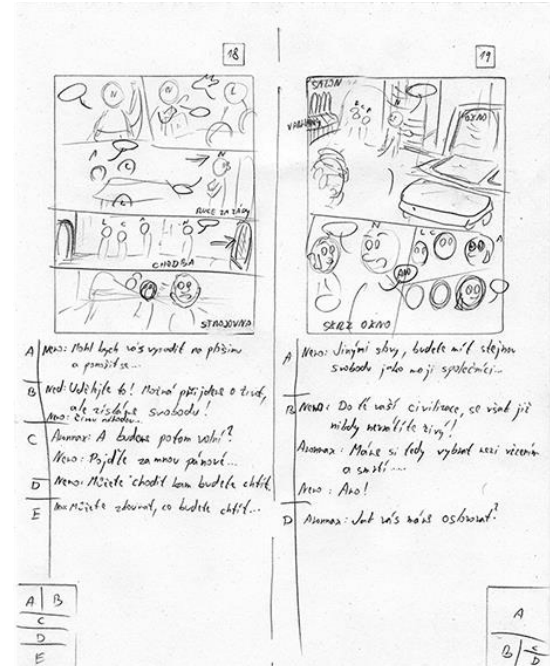 18
N
N
L
A
C
L
N
RUCE ZA ZÁDY
L
C
A
N
CHODBA
STROJOVNA
A
Nemo: Mohl bych vás vysadit na plošinu
a ponořit se...
B
Ned: Udělejte to! Možná přijdeme o život,
ale získáme svobodu!
Nemo:
C
Aronnax: A budeme potom volní?
Nemo: Pojďte za mnou pánové...
D
Nemo: Můžete chodit kam budete chtít.
E
Můžete zkoumat, co budete chtít...
A
B
C
D
E
19
SALON
VARHANY
L C A
N
OKNO
N
ANO
L C
A
SKRZ OKNO
A
Nemo: Jinými slovy, budete mít stejnou
svobodu jako moji společníci...
B
Nemo: Do té vaší civilizace, se však již
nikdy nevrátíte živý!
Aronnax: Máme si tedy vybrat mezi vězením
a smrtí...
Nemo: Ano!
D
Aronnax: Jak vás máme oslovovat?
A
B
C
D